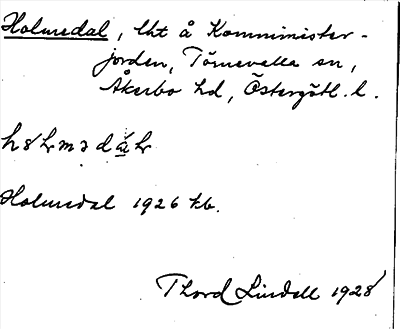 Holmsedal, lht å Komminister-
jorden, Törnevalla sn,
Åkerbo hd, Östergötl. l.
Holmsedal 1926 kb.
Thord Lindell 1928